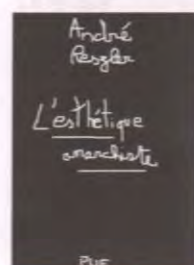 André
Reszler
L'esthétique
anarchiste
PUF